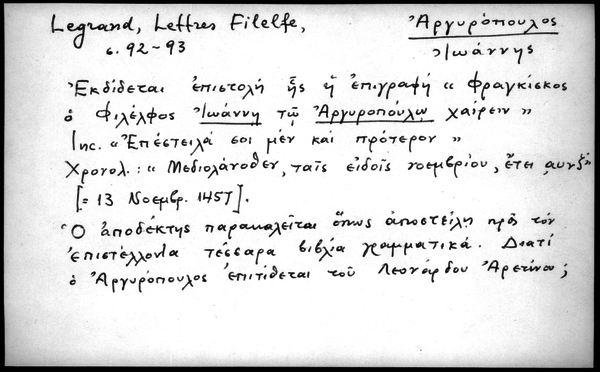 Legrand, Lettres Filelfe,
σ. 92-93
Ἀργυρόπουλος
Ἰωάννης
Ἐκδίδεται ἐπιστολὴ ἧς ἡ ἐπιγραφὴ « Φραγκίσκος
ὁ Φιλέλφος Ἰωάννῃ τῷ Ἀργυροπούλῳ χαίρειν »
Inc. « Ἐπέστειλά σοι μὲν καὶ πρότερον »
Χρονολ. : « Μεδιολάνοθεν, ταῖς εἰδοῖς νοεμβρίου, ἔτει αυνζʹ»
[= 13 Νοεμβρ. 1457].
Ὁ ἀποδέκτης παρακαλεῖται ὅπως ἀποστείλῃ πρὸς τὸν
ἐπιστέλλοντα τέσσαρα βιβλία γραμματικά. Διατί
ὁ Ἀργυρόπουλος ἐπιτίθεται τοῦ Λεονάρδου Ἀρετίνου;